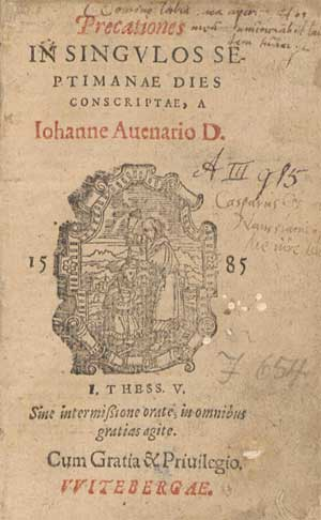 Domine labia mea aperi
Precationes
IN SINGVLOS SE-
PTIMANAE DIES
CONSCRIPTAE, A
Iohanne Auenario D.
A III 915
Casparus
15 85
F 654
I. THESS. V.
Sine intermißione orate, in omnibus
gratias agite.
Cum Gratia & Priuilegio.
VVITEBERGAE.